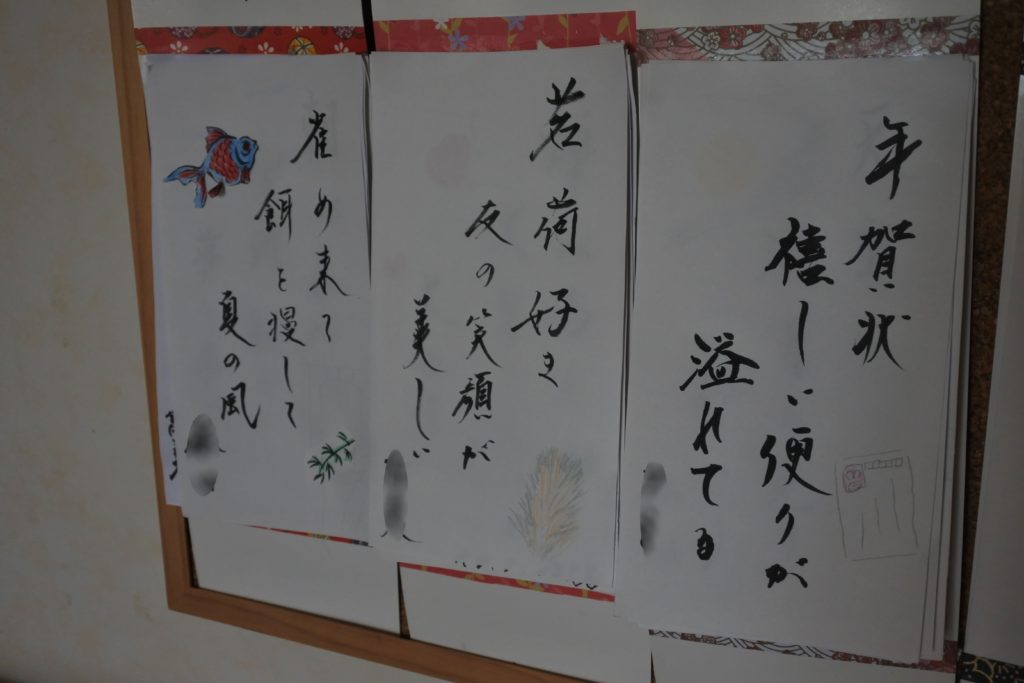 年賀状
禧しい便りが
溢れてる
茗荷好き
友の笑顔が
美しい
雀め来て
餌と慢して
夏の風